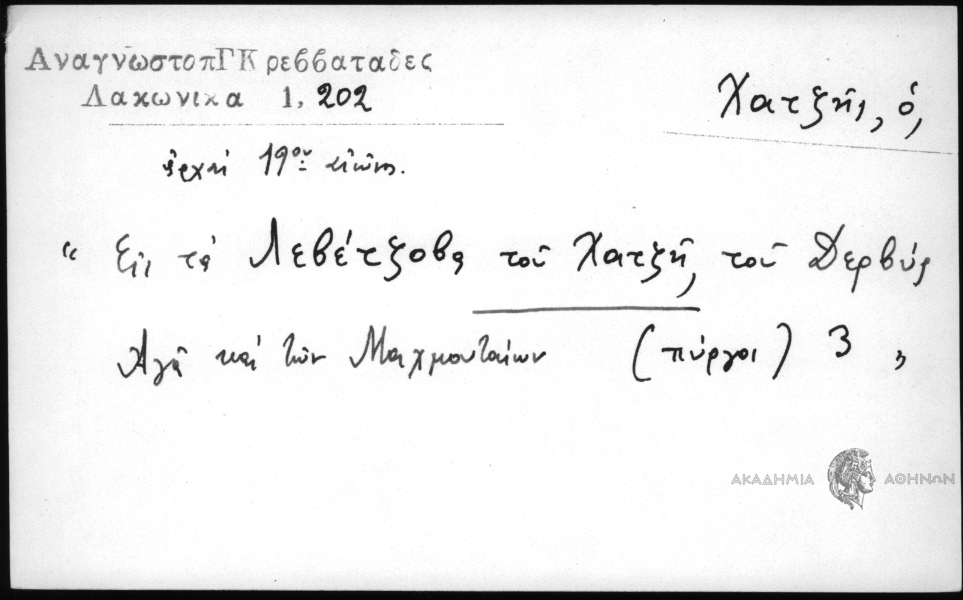 ΑναγνωστοπΓΚ ρεββαταδες
Λακωνικα 1, 202
Χατζῆς, ὁ,
ἀρχαὶ 19ου αἰῶνος.
“ Εἰς τὰ Λεβέτζοβα τοῦ Χατζῆ, τοῦ Δερβὺς
Ἀγᾶ καὶ τῶν Μαχμουταίων (πύργοι) 3 „
ΑΚΑΔΗΜΙΑ ΑΘΗΝΩΝ